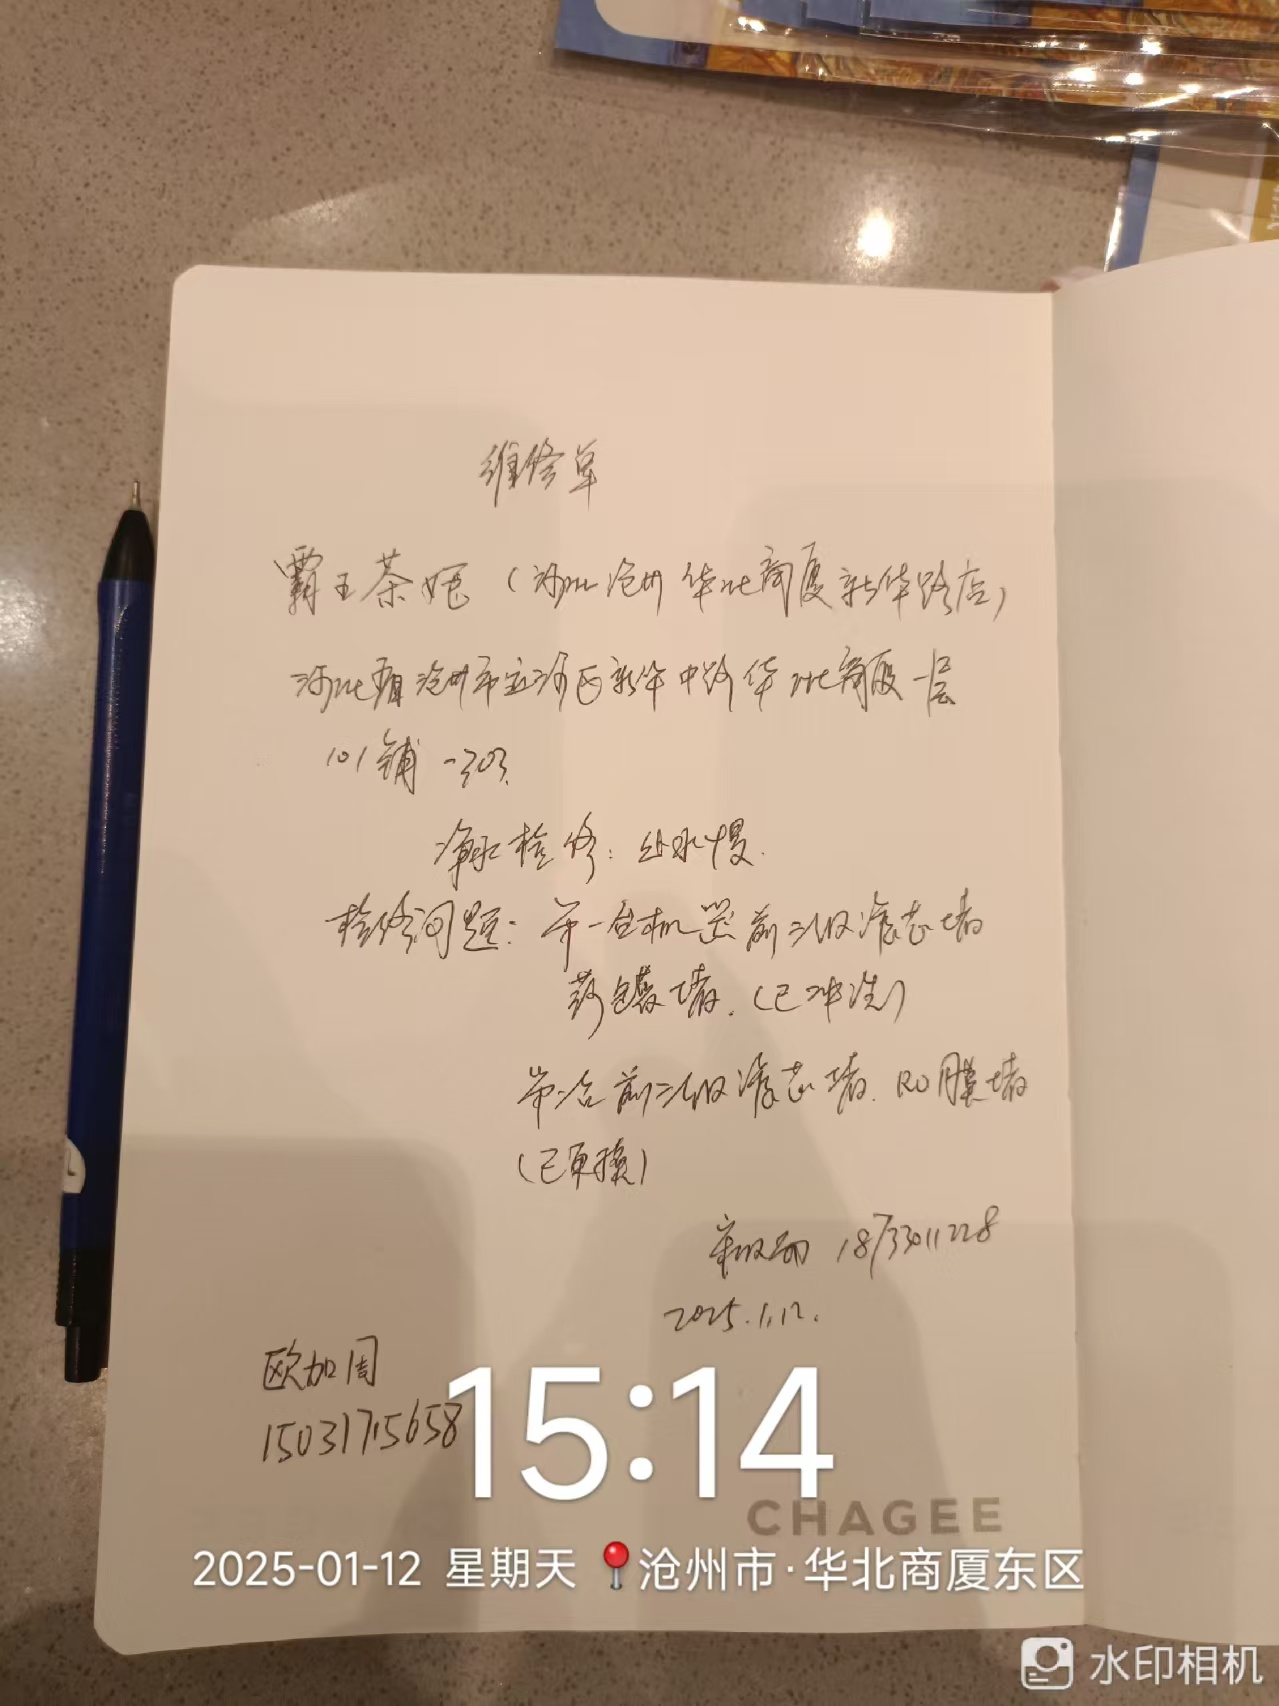 维修单
霸王茶姬（河北沧州华北商厦新华路店）
河北省沧州市运河区新华中路华北商厦一层
101铺-303
净水检修：出水慢.
检修问题：第一台机器前三级滤芯堵
药包袋堵.（已冲洗）
第二台前三级滤芯堵.RO膜堵
（已更换）
18733011228
2025.1.12.
欧加周
15031715658
15:14
CHAGEE
2025-01-12 星期天 沧州市·华北商厦东区
水印相机